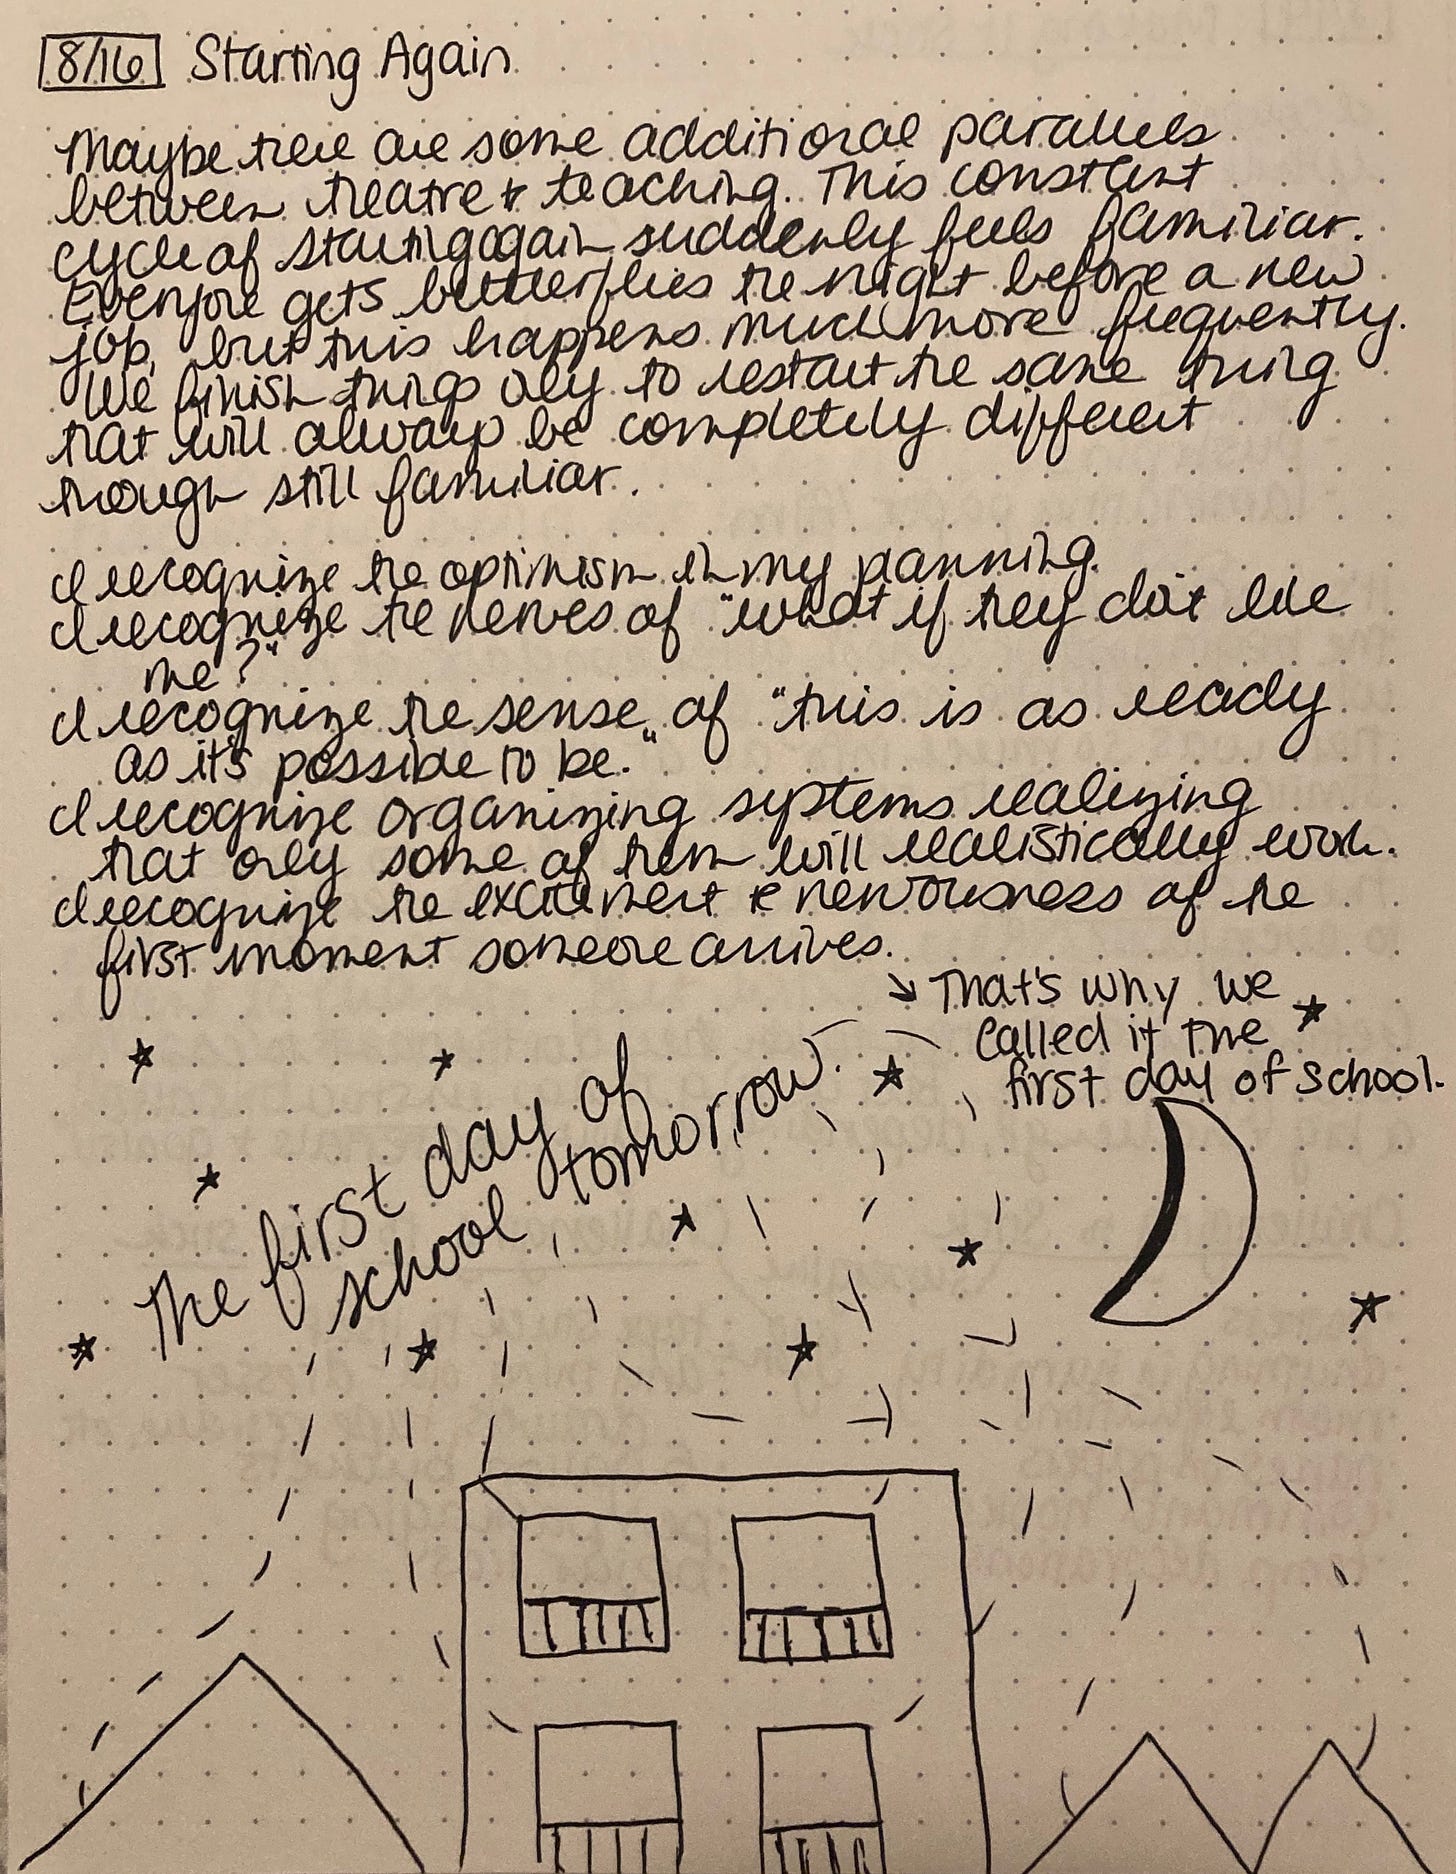 8/16 Starting Again
Maybe there are some additional parallels
between theatre & teaching. This constant
cycle of starting again suddenly feels familiar.
Everyone gets butterflies the night before a new
job, but this happens much more frequently.
We finish things only to restart the same thing
that will always be completely different
though still familiar.
I recognize the optimism in my planning.
I recognize the nerves of "what if they don't like
me?"
I recognize the sense of "this is as ready
as it's possible to be."
I recognize organizing systems realizing
that only some of them will realistically work.
I recognize the excitement & nervousness of the
first moment someone arrives.
→ That's why we
called it the
first day of school.
The first day of
school tomorrow.